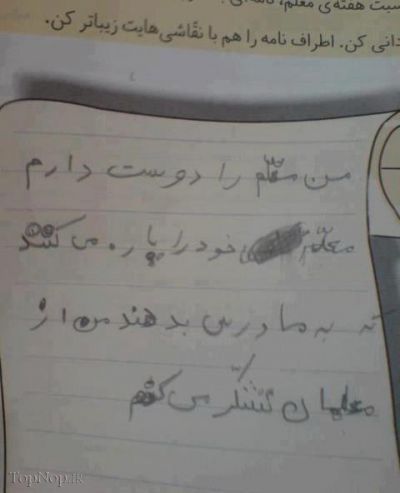 سبت هفته‌ی معلم، نامه‌ای
دانی کن. اطراف نامه را هم با نقّاشی‌هایت زیباتر کن.
من معلّم را دوست دارم
معلّم خود را پاره می کنند
که به ما درس بدهند من از
معلمان تشکّر می کنم
TopNop.ir